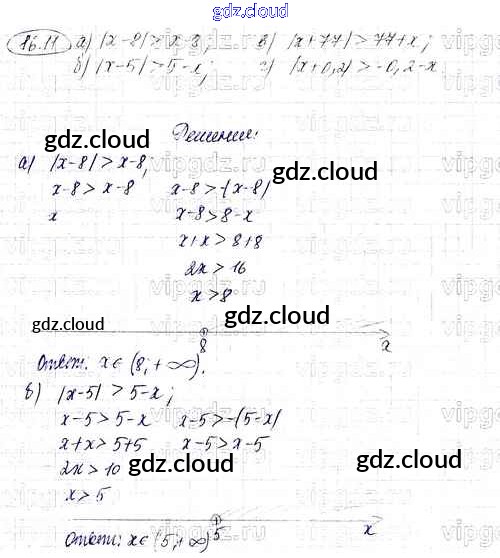 gdz.cloud
16.11 а) |x-8| > x-8; в) |x+77| > 77+x;
б) |x-5| > 5-x; г) |x+0,2| > -0,2-x
Решение:
gdz.cloud
gdz.cloud
а) |x-8| > x-8;
x-8 > x-8 x-8 > -(x-8)
gdz.cloud
x x-8 > 8-x
x+x > 8+8
2x > 16
x > 8
gdz.cloud
gdz.cloud
8 x
Ответ: x∈(8; +∞).
gdz.cloud
б) |x-5| > 5-x;
x-5 > 5-x x-5 > -(5-x)
gdz.cloud
x+x > 5+5 x-5 > x-5
2x > 10
gdz.cloud
gdz.cloud
x > 5
5 x
Ответ: x∈(5; +∞)